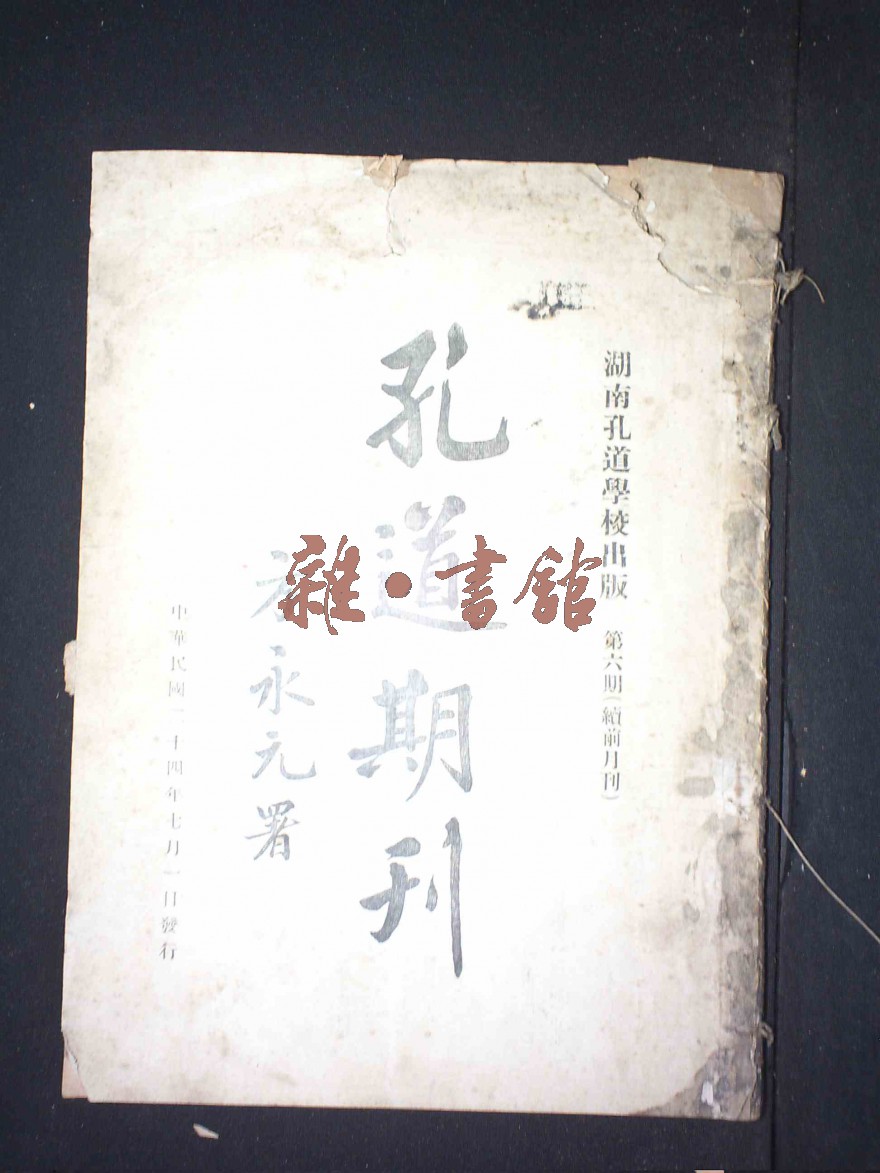 湖南孔道學校出版 第六期(續前月刊)
孔道期刊
永元署
中華民國二十四年七月一日發行
雜·書館